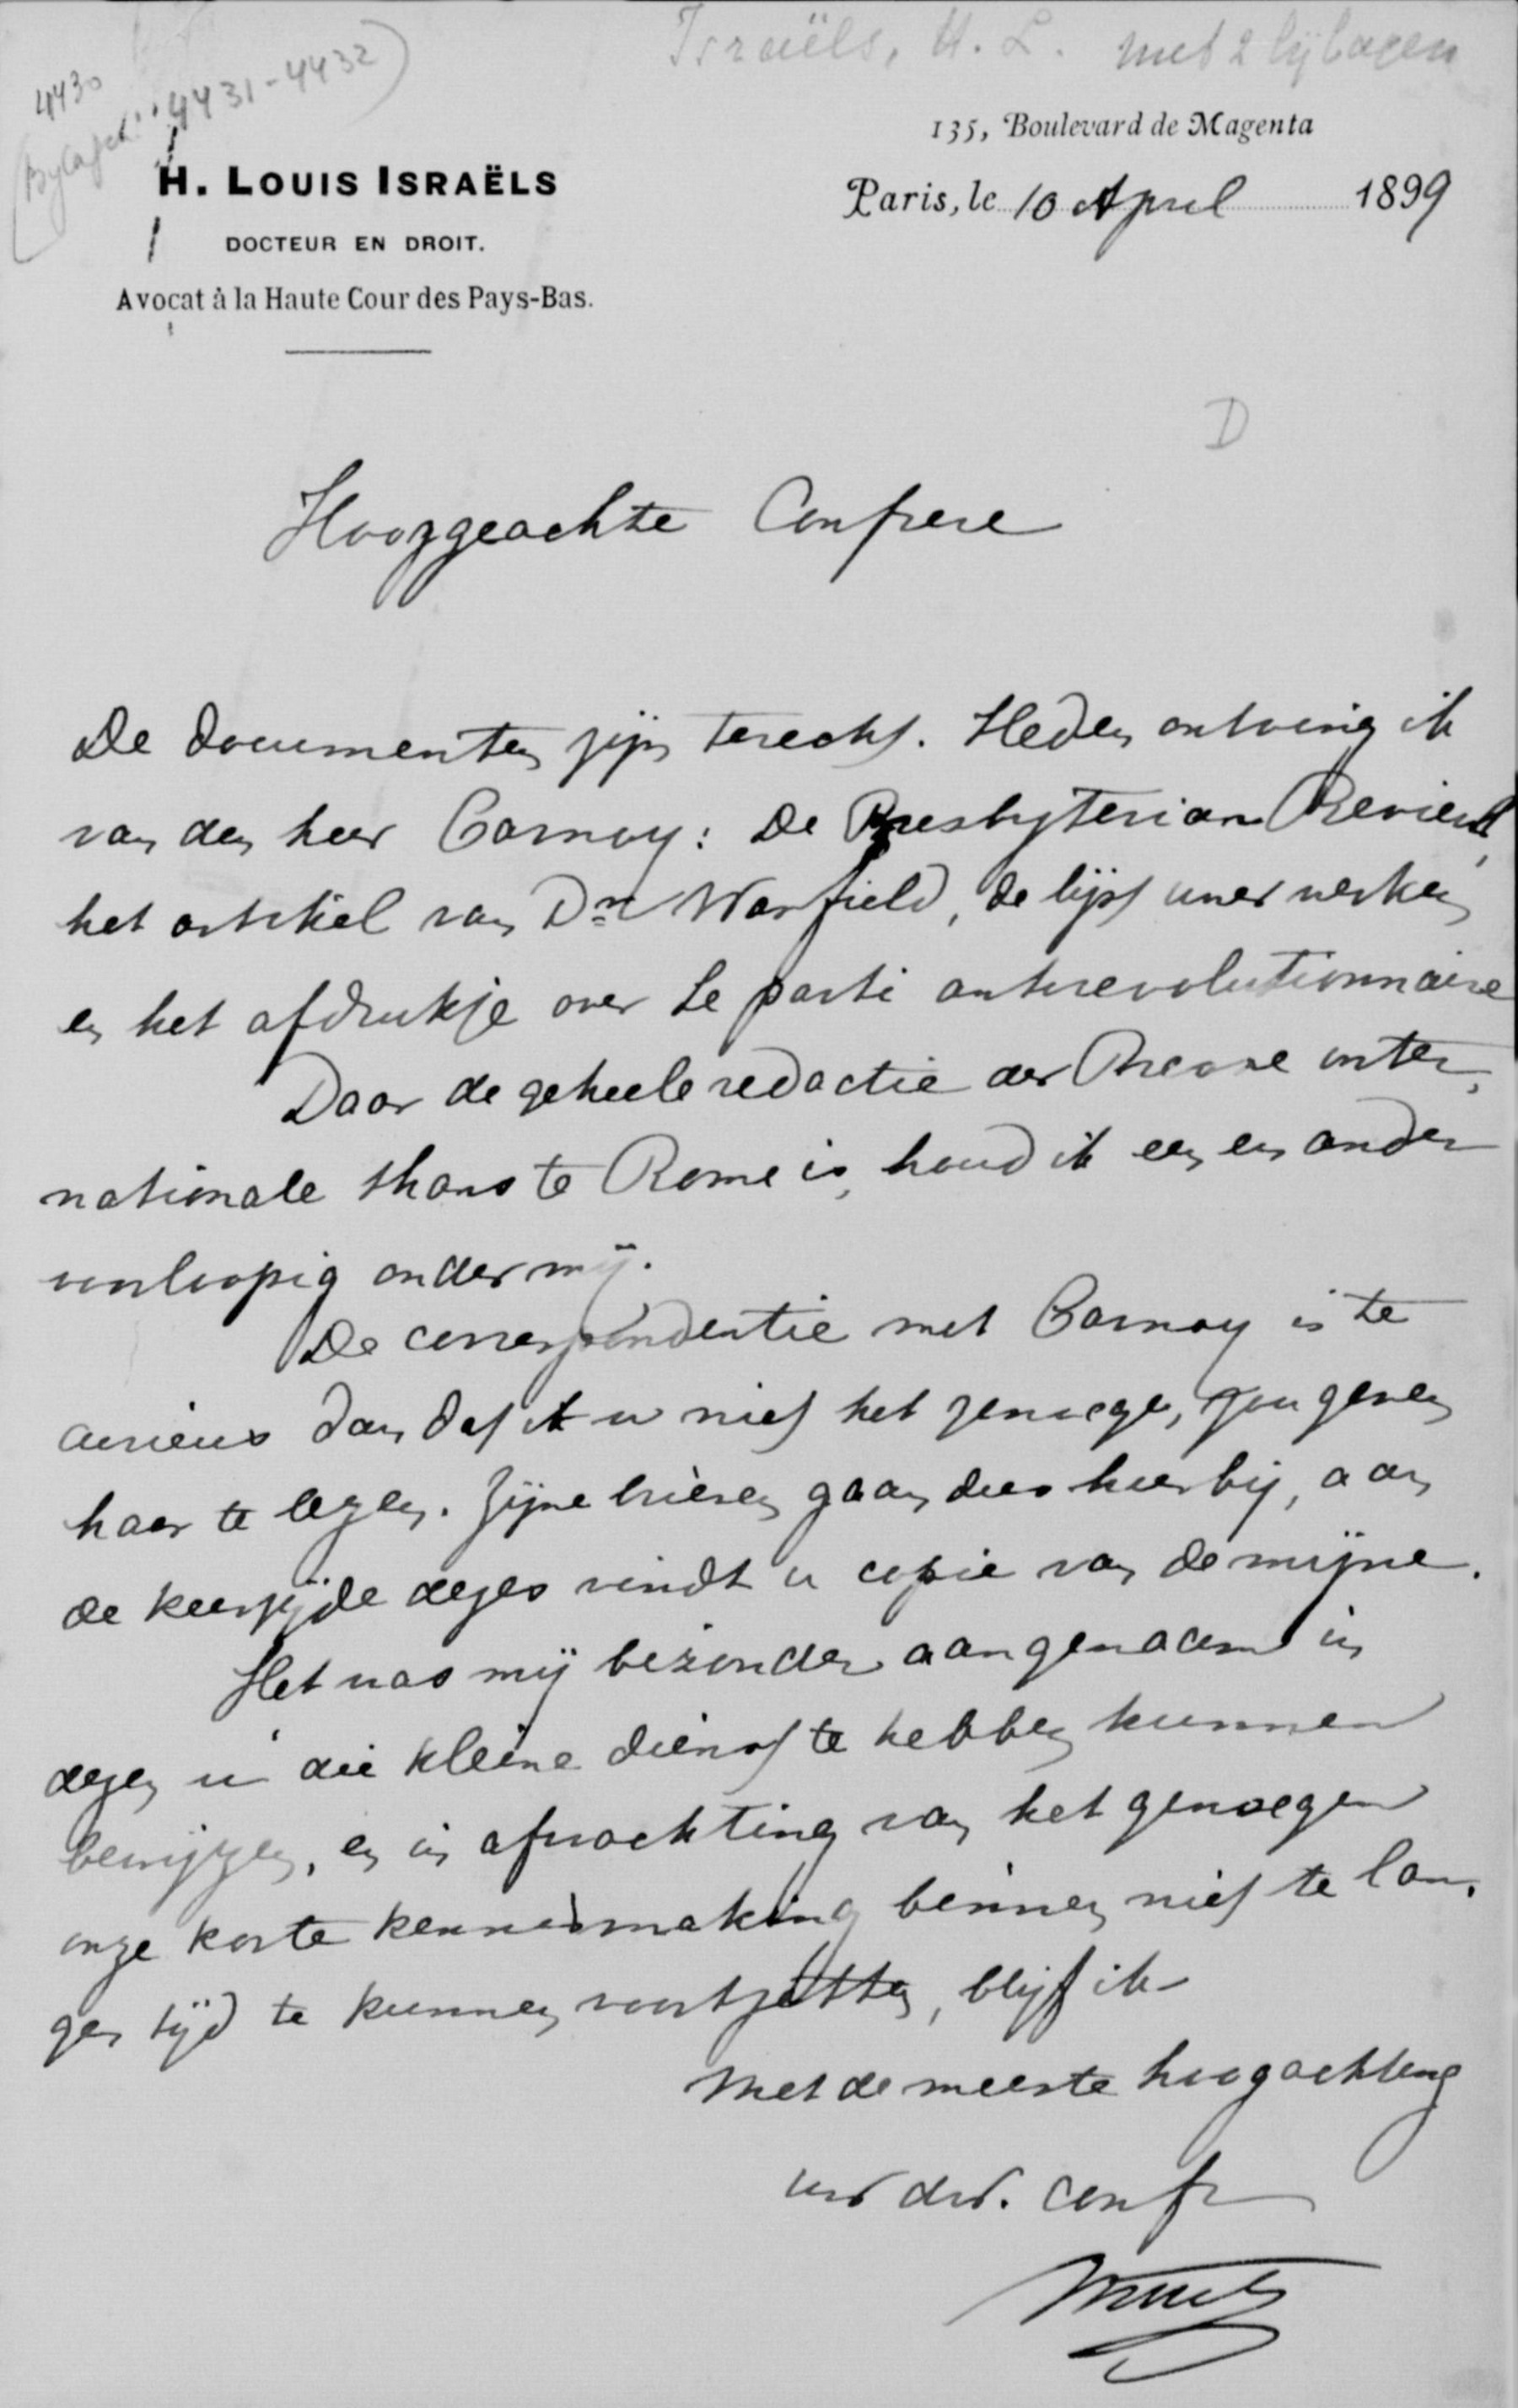 Israëls, H. L. met 2 bijlagen
4430
(Bylagen: 4431-4432)
135, Boulevard de Magenta
H. LOUIS ISRAËLS
Paris, le 10 April 1899
DOCTEUR EN DROIT.
Avocat à la Haute Cour des Pays-Bas.
D
Hooggeachte Confrere
De documenten zijn terecht. Heden ontving ik
van den heer Carnoy: De Presbyterian Review,
het artikel van Dr Warfield, de lijst uwer werken
en het afdrukje over Le parti antirevolutionnaire
Daar de geheele redactie der Revue inter-
nationale thans te Rome is, houd ik een en ander
voorloopig onder mij.
De correspondentie met Carnoy is te
curieus dan dat ik u niet het genoegen zou geven
haar te lezen. Zijne brieven gaan dus hierbij, aan
de keerzijde dezes vindt u copie van de mijne.
Het was mij bezonder aangenaam in
dezen u die kleine dienst te hebben kunnen
bewijzen, en in afwachting van het genoegen
onze korte kennismaking binnen niet te lan-
gen tijd te kunnen voortzetten, blijf ik
Met de meeste hoogachting
uw dw. confr
Israels